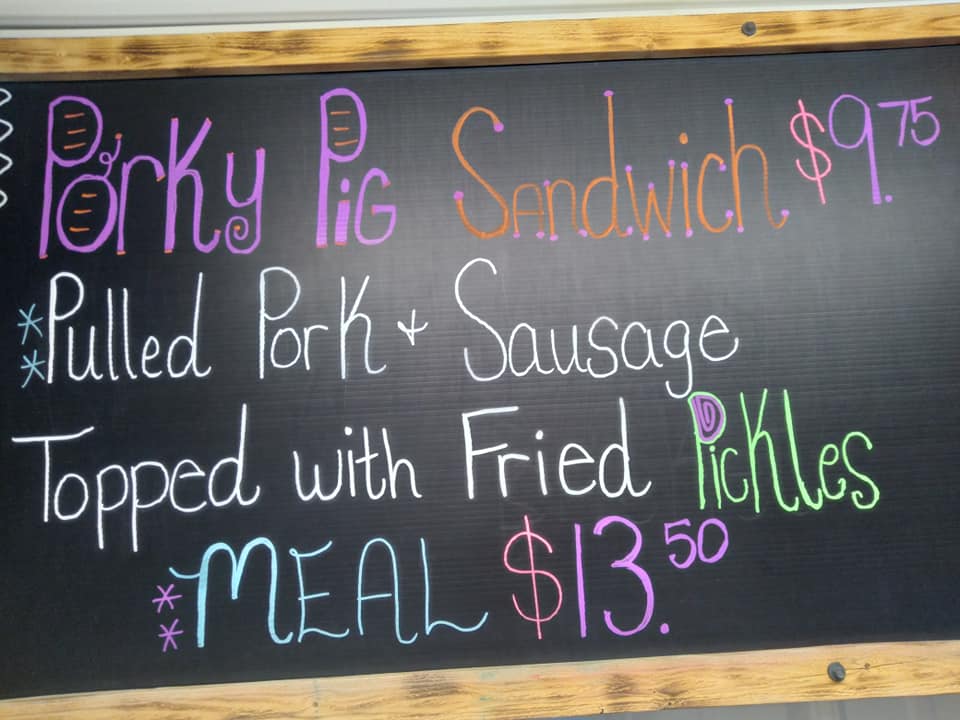 Porky Pig Sandwich $9.75
**Pulled Pork + Sausage
Topped with Fried Pickles
**MEAL $13.50